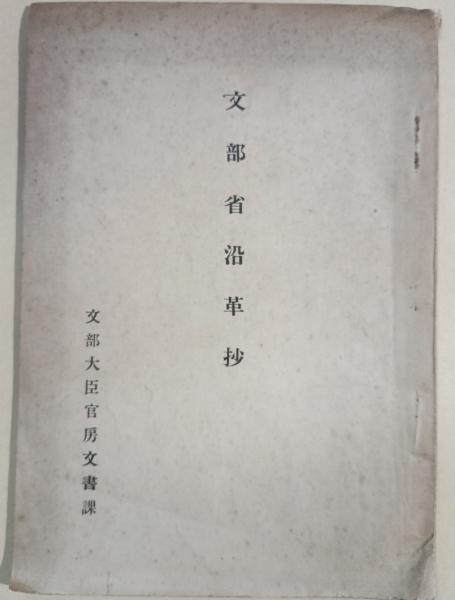 文部省沿革抄
文部大臣官房文書課